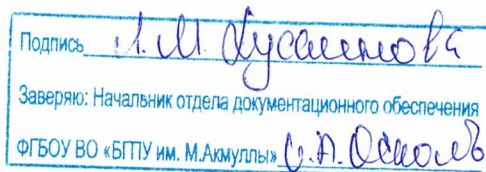 Подпись Л.М. Хусаинова
Заверяю: Начальник отдела документационного обеспечения
ФГБОУ ВО «БГПУ им. М.Акмуллы»